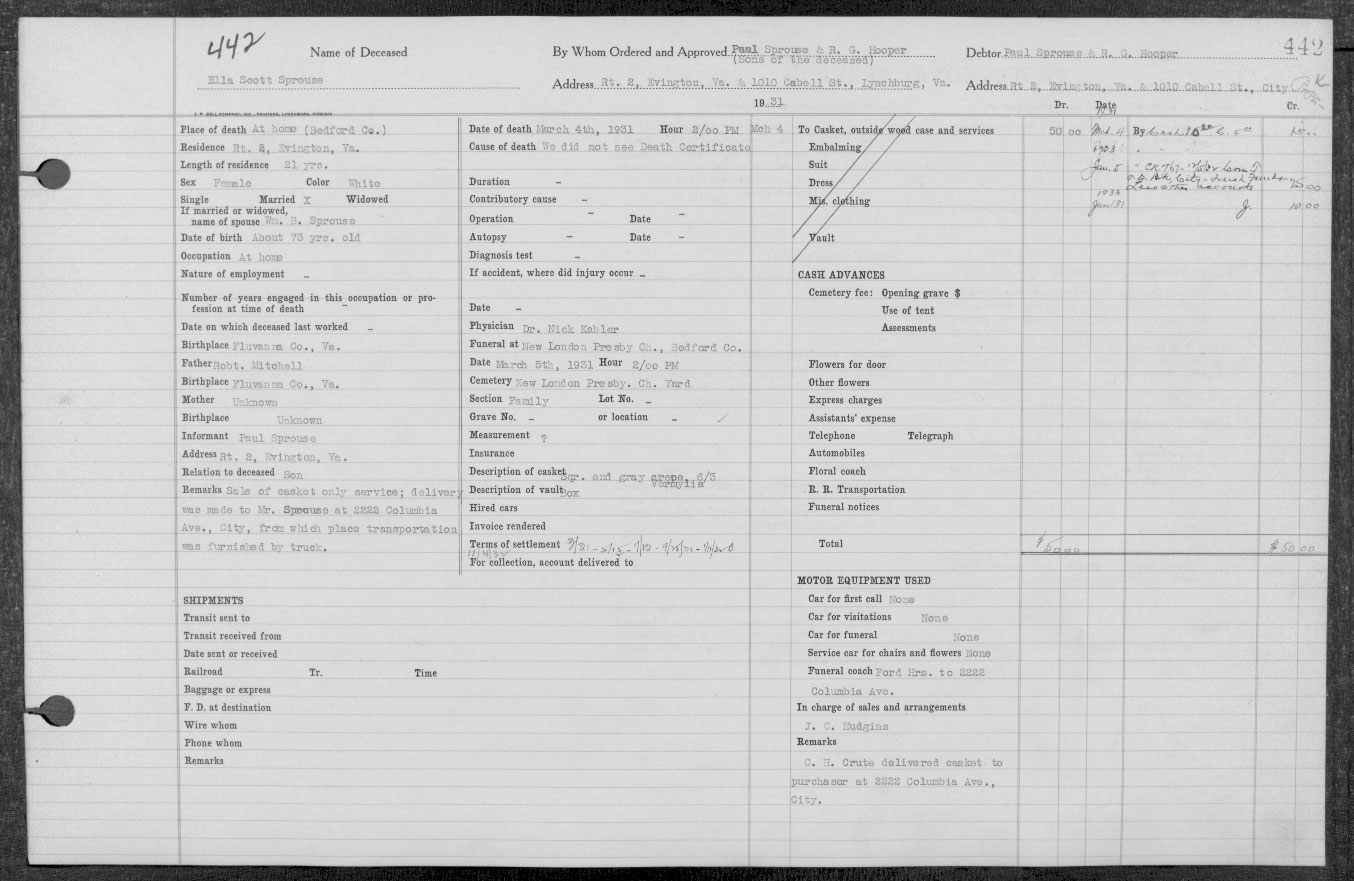 442
Name of Deceased
Ella Scott Sprouse
By Whom Ordered and Approved Paul Sprouse & R. G. Hooper
(Sons of the deceased)
Address Rt. 2, Evington, Va. & 1010 Cabell St., Lynchburg, Va.
Debtor Paul Sprouse & R. G. Hooper
442
Address Rt 2, Evington, Va. & 1010 Cabell St., City
J. P. BELL COMPANY, INC., PRINTERS, LYNCHBURG, VIRGINIA
19 31
Dr. Date Cr.
1931
Place of death At home (Bedford Co.)
Residence Rt. 2, Evington, Va.
Length of residence 21 yrs.
Sex Female Color White
Single Married X Widowed
If married or widowed,
name of spouse Wm. B. Sprouse
Date of birth About 73 yrs. old
Occupation At home
Nature of employment -
Number of years engaged in this occupation or pro-
fession at time of death -
Date on which deceased last worked -
Birthplace Fluvanna Co., Va.
Father Robt. Mitchell
Birthplace Fluvanna Co., Va.
Mother Unknown
Birthplace Unknown
Informant Paul Sprouse
Address Rt. 2, Evington, Va.
Relation to deceased Son
Remarks Sale of casket only service; delivery
was made to Mr. Sprouse at 2222 Columbia
Ave., City, from which place transportation
was furnished by truck.
SHIPMENTS
Transit sent to
Transit received from
Date sent or received
Railroad Tr. Time
Baggage or express
F. D. at destination
Wire whom
Phone whom
Remarks
Date of death March 4th, 1931 Hour 2/00 PM
Cause of death We did not see Death Certificate
Duration -
Contributory cause -
Operation - Date -
Autopsy - Date -
Diagnosis test -
If accident, where did injury occur -
Date -
Physician Dr. Nick Kabler
Funeral at New London Presby Ch., Bedford Co.
Date March 5th, 1931 Hour 2/00 PM
Cemetery New London Presby. Ch. Yard
Section Family Lot No. -
Grave No. - or location -
Measurement ?
Insurance
Description of casket Sqr. end gray crepe, 6/3
Vermylia
Description of vault Box
Hired cars
Invoice rendered
Terms of settlement 3/31
For collection, account delivered to
Mch 4
To Casket, outside wood case and services 50 00
Embalming
Suit
Dress
Mis. clothing
Vault
CASH ADVANCES
Cemetery fee: Opening grave $
Use of tent
Assessments
Flowers for door
Other flowers
Express charges
Assistants' expense
Telephone Telegraph
Automobiles
Floral coach
R. R. Transportation
Funeral notices
Total $50.00 $50 00
MOTOR EQUIPMENT USED
Car for first call None
Car for visitations None
Car for funeral None
Service car for chairs and flowers None
Funeral coach Ford Hrs. to 2222
Columbia Ave.
In charge of sales and arrangements
J. C. Hudgins
Remarks
C. H. Crute delivered casket to
purchaser at 2222 Columbia Ave.,
City.
Mch. 4 By Cash
Jan. 5 " CK 767
1933
Jan 31 J. 10 00